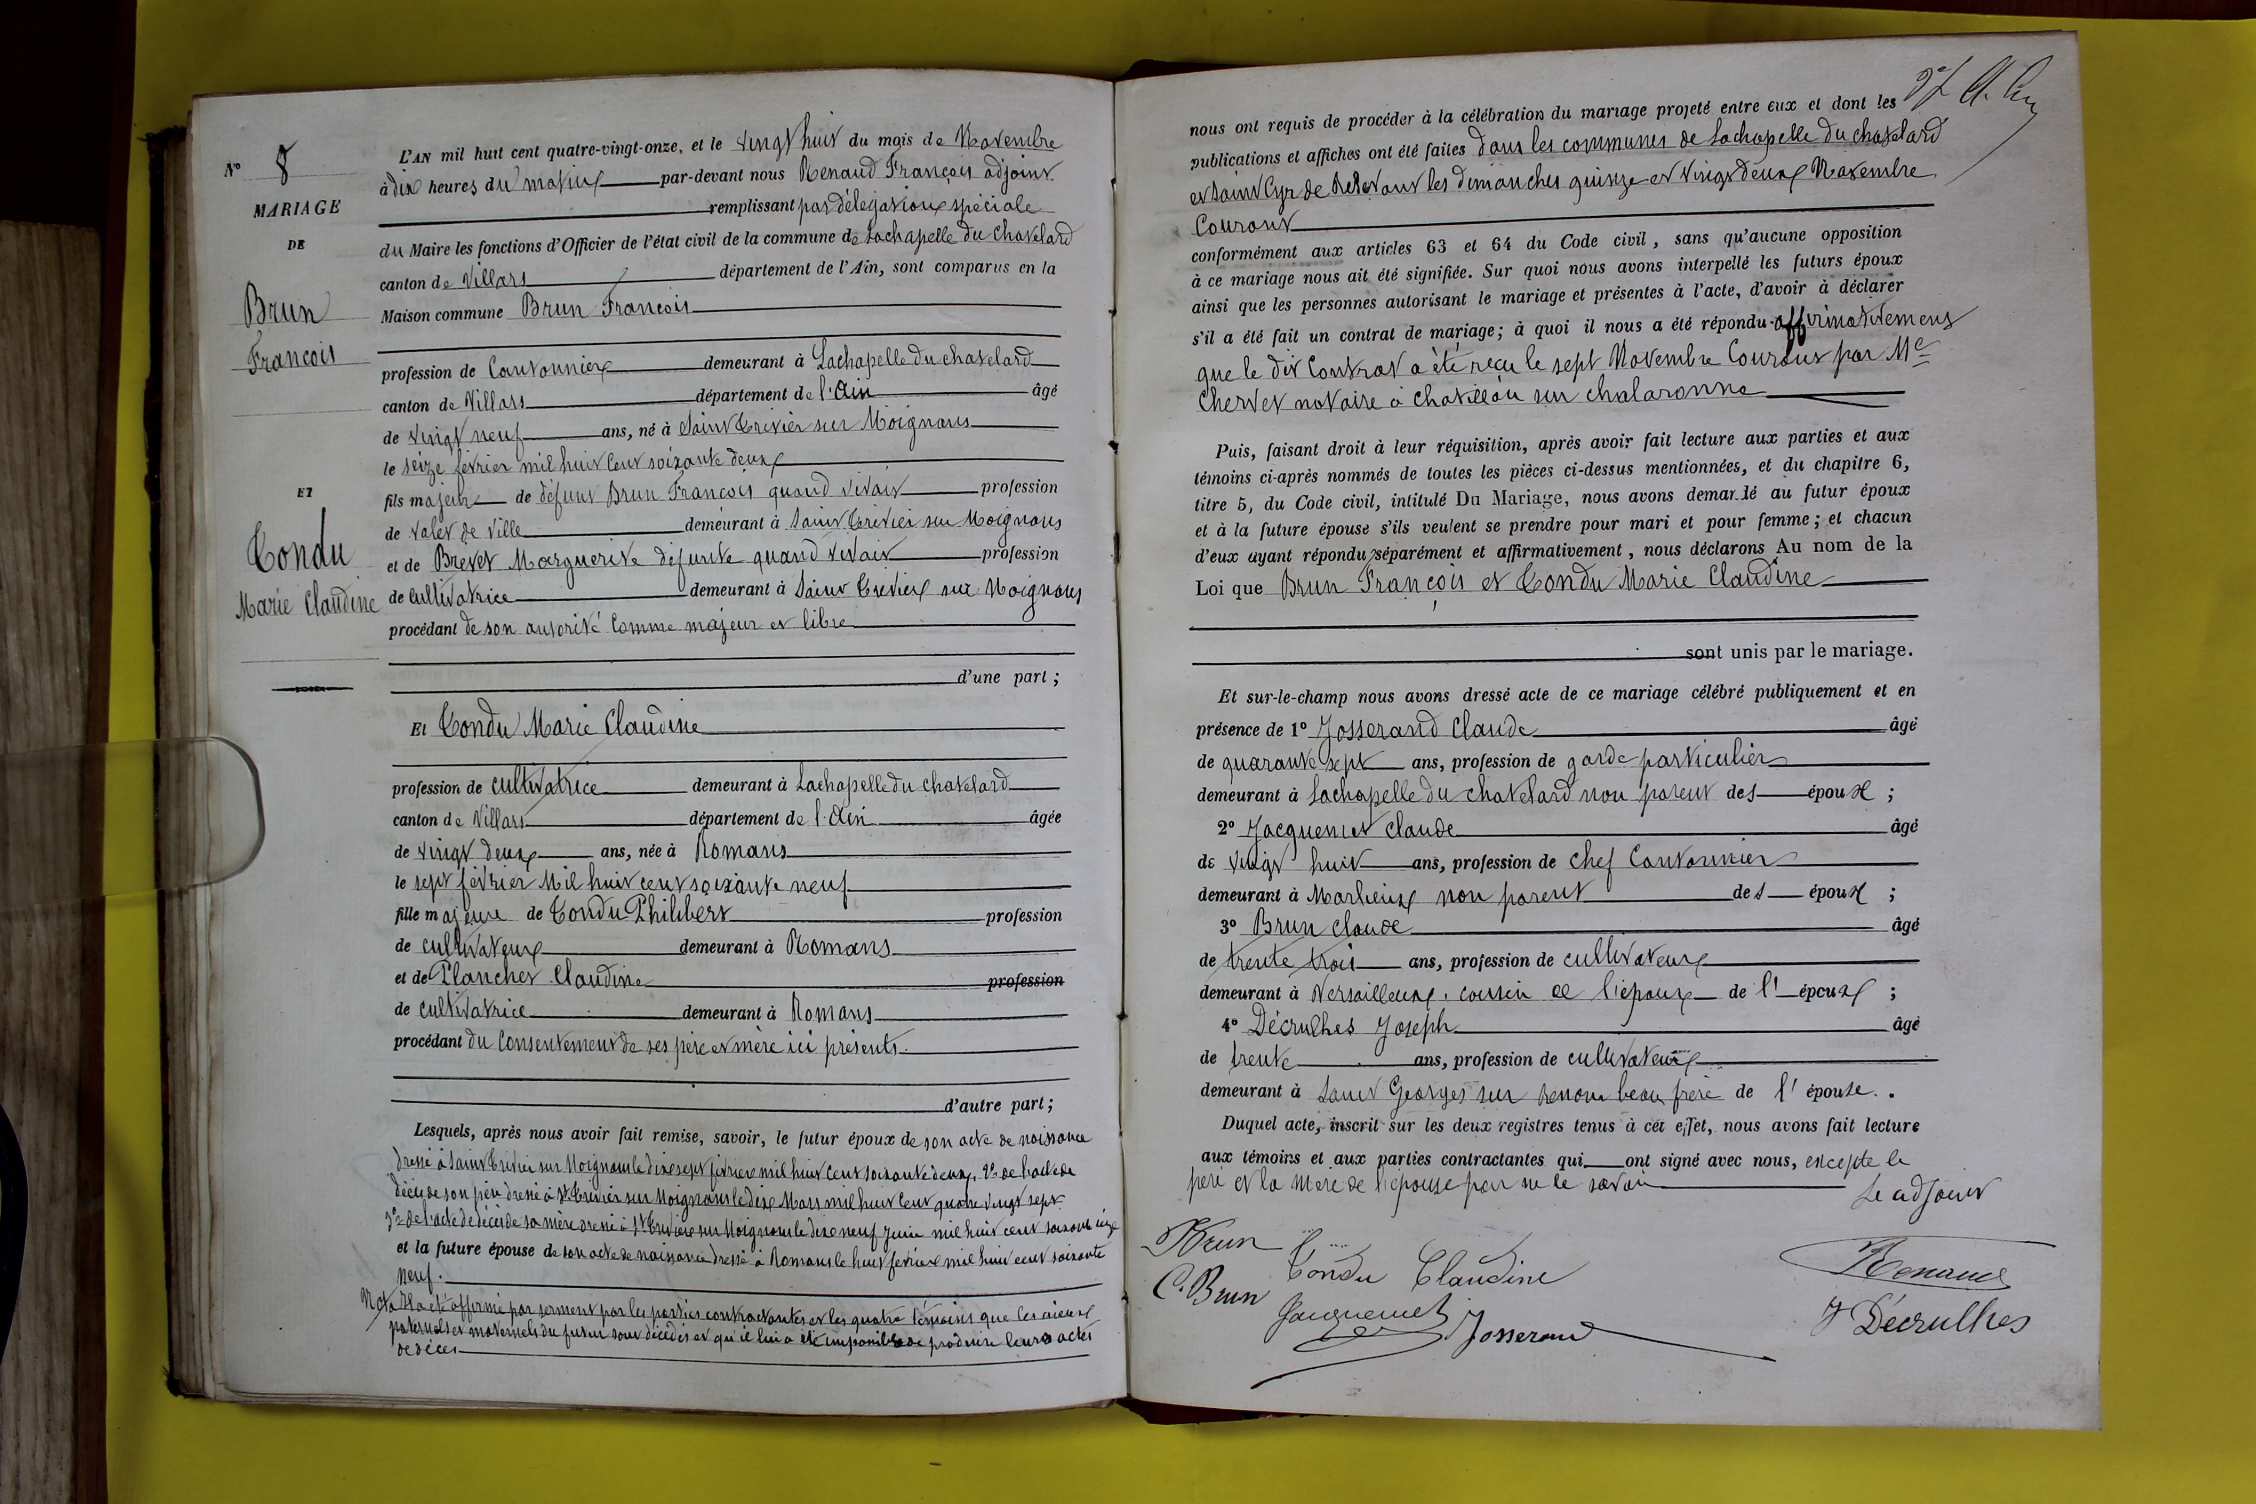 N° 8
MARIAGE
DE
Brun
François
ET
Tondu
Marie Claudine
L'AN mil huit cent quatre-vingt-onze, et le vingt huit du mois de Novembre
à dix heures du matin par-devant nous Renaud François adjoint
remplissant par délégation spéciale
du Maire les fonctions d'Officier de l'état civil de la commune de Lachapelle du Chatelard
canton de Villars département de l'Ain, sont comparus en la
Maison commune Brun François
profession de Cantonnier demeurant à Lachapelle du chatelard
canton de Villars département de l'Ain âgé
de vingt neuf ans, né à Saint Trivier sur Moignans
le seize février mil huit cent soixante deux
fils majeur de défunt Brun François quand vivait profession
de valet de ville demeurant à Saint Trivier sur Moignans
et de Brevet Marguerite défunte quand vivait profession
de cultivatrice demeurant à Saint Trivier sur Moignans
procédant de son autorité comme majeur et libre
d'une part ;
Et Tondu Marie Claudine
profession de cultivatrice demeurant à Lachapelle du chatelard
canton de Villars département de l'Ain âgée
de vingt deux ans, née à Romans
le sept février Mil huit cent soixante neuf
fille majeure de Tondu Philibert profession
de cultivateur demeurant à Romans
et de Planchet Claudine profession
de cultivatrice demeurant à Romans
procédant du consentement de ses père et mère ici présents.
d'autre part ;
Lesquels, après nous avoir fait remise, savoir, le futur époux de son acte de naissance
dressé à Saint Trivier sur Moignans le dix sept février mil huit cent soixante deux, 2° de l'acte de
décès de son père dressé à St Trivier sur Moignans le dix Mars mil huit cent quatre vingt sept
3° de l'acte de décès de sa mère dressé à St Trivier sur Moignans le dix neuf Juin mil huit cent soixante
et la future épouse de son acte de naissance dressé à Romans le huit février mil huit cent soixante
neuf.
Nota Il a été affirmé par serment par les parties contractantes et les quatre témoins que les aieux
paternels et maternels du futur sont décédés et qu'il lui a été impossible de produire leurs actes
de décès
nous ont requis de procéder à la célébration du mariage projeté entre eux et dont les
publications et affiches ont été faites dans les communes de Lachapelle du chatelard
et Saint Cyr de Relevant les dimanches quinze et vingt deux Novembre
Courant
conformément aux articles 63 et 64 du Code civil, sans qu'aucune opposition
à ce mariage nous ait été signifiée. Sur quoi nous avons interpellé les futurs époux
ainsi que les personnes autorisant le mariage et présentes à l'acte, d'avoir à déclarer
s'il a été fait un contrat de mariage; à quoi il nous a été répondu affirmativement
que le dit Contrat a été reçu le sept Novembre Courant par Me
Chervet notaire à chatillon sur chalaronne
Puis, faisant droit à leur réquisition, après avoir fait lecture aux parties et aux
témoins ci-après nommés de toutes les pièces ci-dessus mentionnées, et du chapitre 6,
titre 5, du Code civil, intitulé Du Mariage, nous avons demandé au futur époux
et à la future épouse s'ils veulent se prendre pour mari et pour femme ; et chacun
d'eux ayant répondu séparément et affirmativement, nous déclarons Au nom de la
Loi que Brun François et Tondu Marie Claudine
sont unis par le mariage.
Et sur-le-champ nous avons dressé acte de ce mariage célébré publiquement et en
présence de 1° Josserand Claude âgé
de quarante sept ans, profession de garde particulier
demeurant à Lachapelle du chatelard non parent des époux ;
2° Jacquemet Claude âgé
de vingt huit ans, profession de chef Cantonnier
demeurant à Marlieux non parent des époux ;
3° Brun Claude âgé
de trente trois ans, profession de cultivateur
demeurant à Versailleux, cousin de l'époux de l'époux ;
4° Décrulhes Joseph âgé
de trente ans, profession de cultivateur
demeurant à Saint Georges sur Renom beau frère de l'épouse.
Duquel acte, inscrit sur les deux registres tenus à cet effet, nous avons fait lecture
aux témoins et aux parties contractantes qui ont signé avec nous, excepté le
père et la mère de l'épouse pour ne le savoir
Le adjoint
Brun
Tondu Claudine
Renaud
C. Brun
Jacquemet
Josserand
J Décrulhes